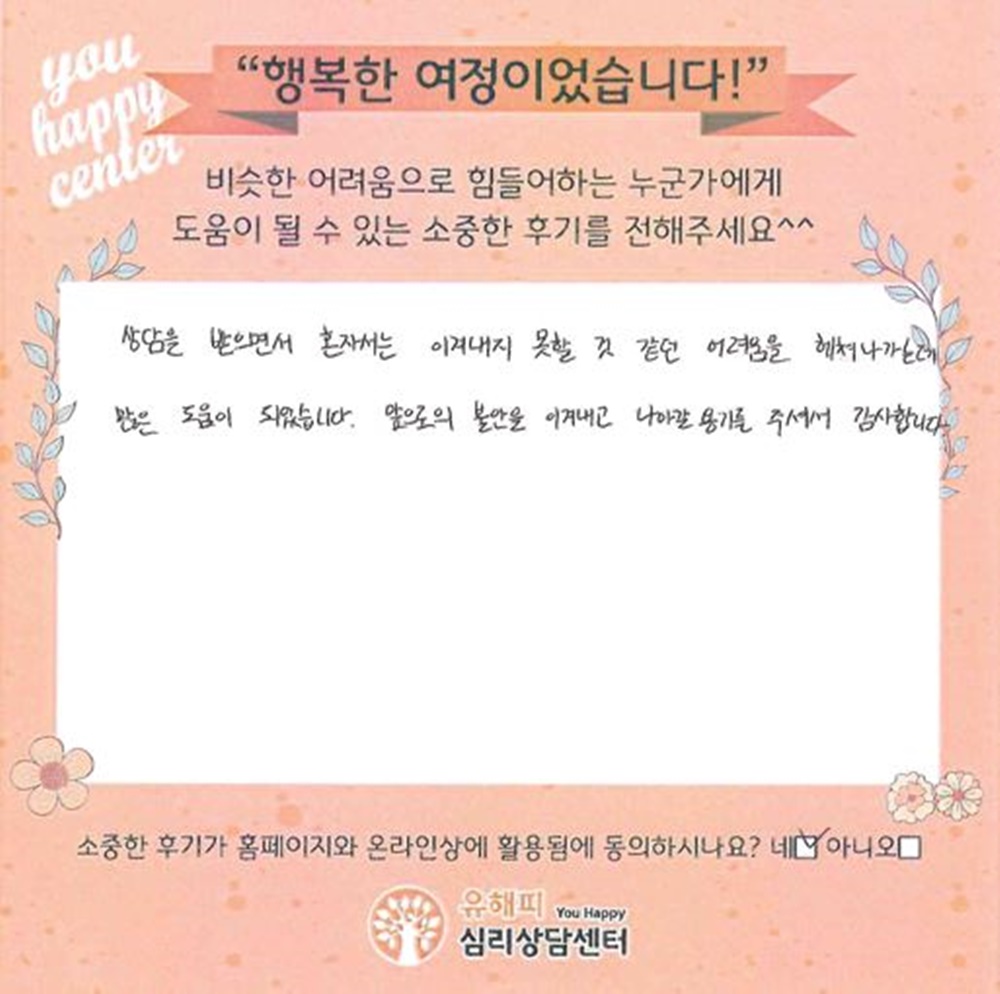 you
happy
center
“행복한 여정이었습니다!”
비슷한 어려움으로 힘들어하는 누군가에게
도움이 될 수 있는 소중한 후기를 전해주세요^^
상담을 받으면서 혼자서는 이겨내지 못할 것 같던 어려움을 헤쳐나가는데
많은 도움이 되었습니다. 앞으로의 불안을 이겨내고 나아갈 용기를 주셔서 감사합니다.
소중한 후기가 홈페이지와 온라인상에 활용됨에 동의하시나요? 네 아니오
유해피 You Happy
심리상담센터